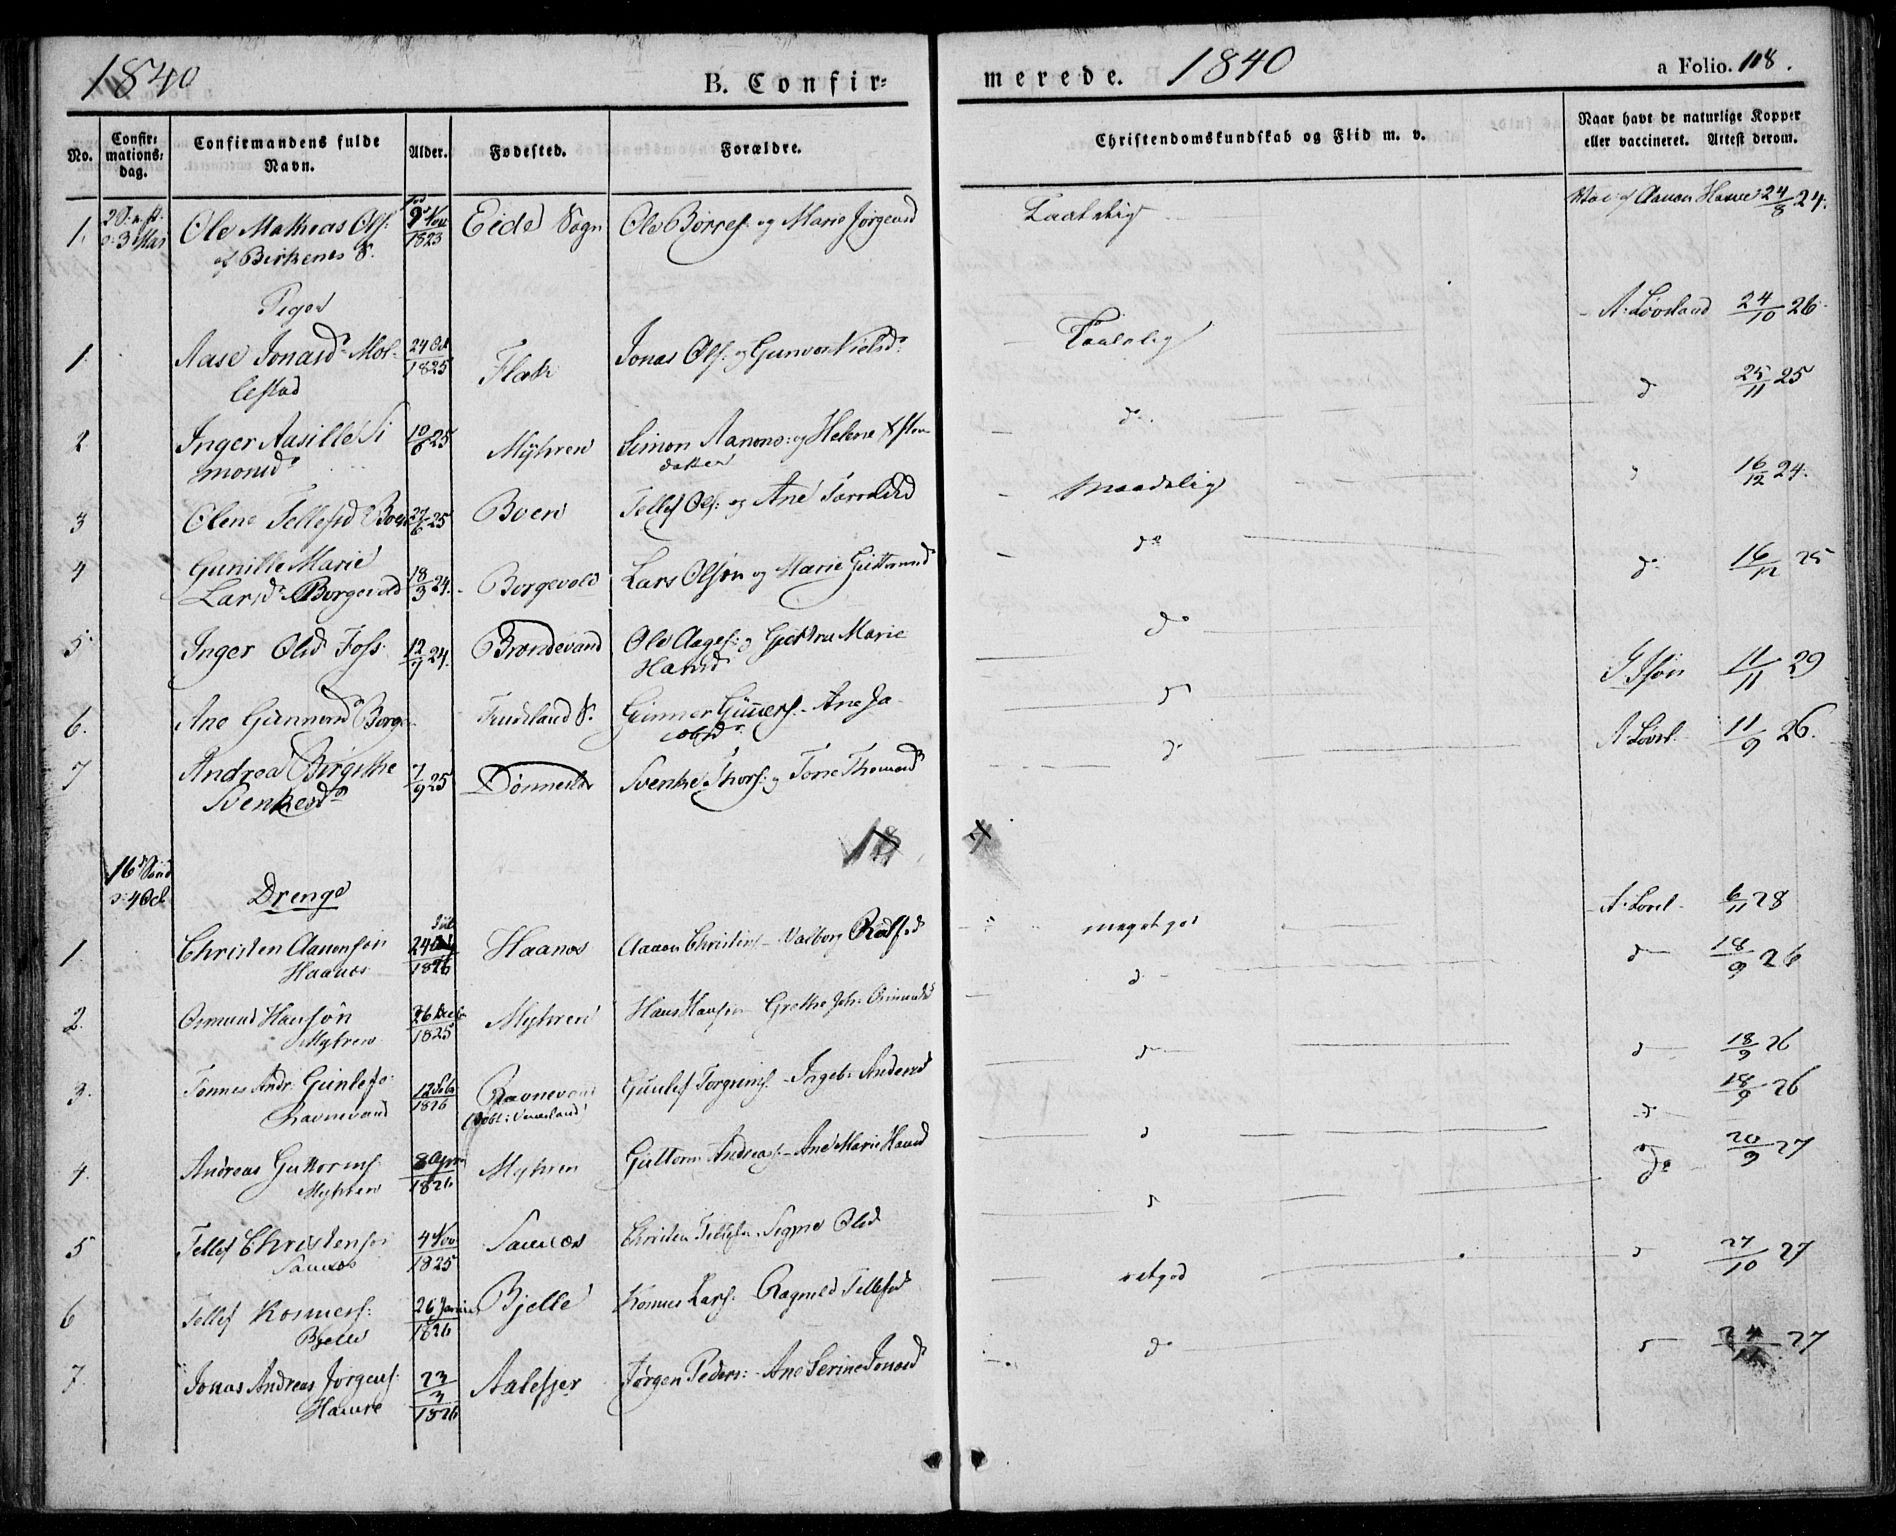 1840
B. Confir=
merede.
1840
a Folio. 118.
No.
Confir=
mations=
dag.
Confirmandens fulde
Navn.
Alder.
Fødested.
Forældre.
Christendomskundskab og Flid m. v.
Naar havt de naturlige Kopper
eller vaccineret. Attest derom.
1.
Ole Mathias Ols:
af Birkenes S.
9 Nov
1823
Eide Sogn
Ole Børres: og Marie Jørgensd
Taalelig
af Aanon 24/8 24.
Piger
1.
Aase Jonasd. Mol-
lestad
24 Oct
1825
Flak
Jonas Ols: og Gunvor Nielsd.
Taalelig
A: Løvsland 24/10 26
2
Inger Aasille Si
monsd.
10/8 25
Myhren
Simon Aanons: og Helene
datter
do
d 25/11 25
3
Olene Tellefsd Boen
27/6 25
Boen
Tellef Ols: og Ane
Maadelig
16/12 24.
4
Gunille Marie
Larsd. Borgevold
18/3 24.
Borgevold
Lars Olsøn og Marie Guttormsd
do
do 16/12 25
5
Inger Olsd Foss
12/9 24.
Brændevand
Ole Aages: og Marie
Hansd
do
11/11 29
6.
Ane Gunnersd Borge
Froland S.
Gunner Gunners. - Ane Ja-
cobsd.
d
A Løvsl. 11/9 26.
7
Andrea Birgithe
Svenkesd.
7/9 25
Dønnestad
Svenke Thors: og Tone Thomasd
do
16 Sønd
d: 4 Oct
Drenge
1
Christen Aanonsøn
Haanes
24
1826
Haanes
Aanon Christens - Valborg
meget god
A: Løvsl. 6/11 28
2.
Osmund Hansøn
Myhren
26 Decbr
1825
Myhren
Hans Hansøn Grethe Osmundsd
d
d 18/9 26
3.
Tønnes Andr. Gunlefs:
Ravnevand
12 Feb
1826
Ravnevand
Gunlef Torgrims - Ingeb: Andersd
d
d 18/9 26
18/9 26
4.
Andreas Guttorms:
Myhren
8 Apr
1826
Myhren
Guttorm Andreas: - Ane Marie Hansd
d
do 20/9 27
5
Tellef Christensøn
Saunæs
4 Nov
1825
Saunæs
Christen Tellefsøn - Signe Olsd
d
d 27/10 27
6
Tellef
Bjelle
26 Januar
1826
Bjelle
Lars: Ragnild Tellefsd
ret god
7.
Jonas Andreas Jørgens:
Hamre
23/3
1826
Aalefjær
Jørgen Peders: - Ane Serine Jonasd
do